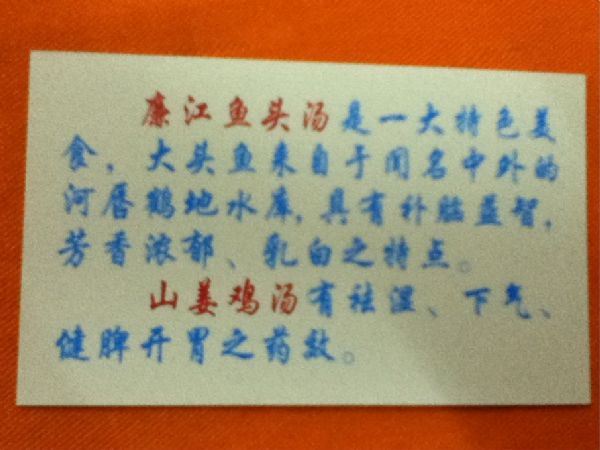 廉江鱼头汤是一大特色美
食，大头鱼来自于闻名中外的
河唇鹤地水库，具有补脑益智，
芳香浓郁、乳白之特点。
山姜鸡汤有祛湿、下气、
健脾开胃之药效。